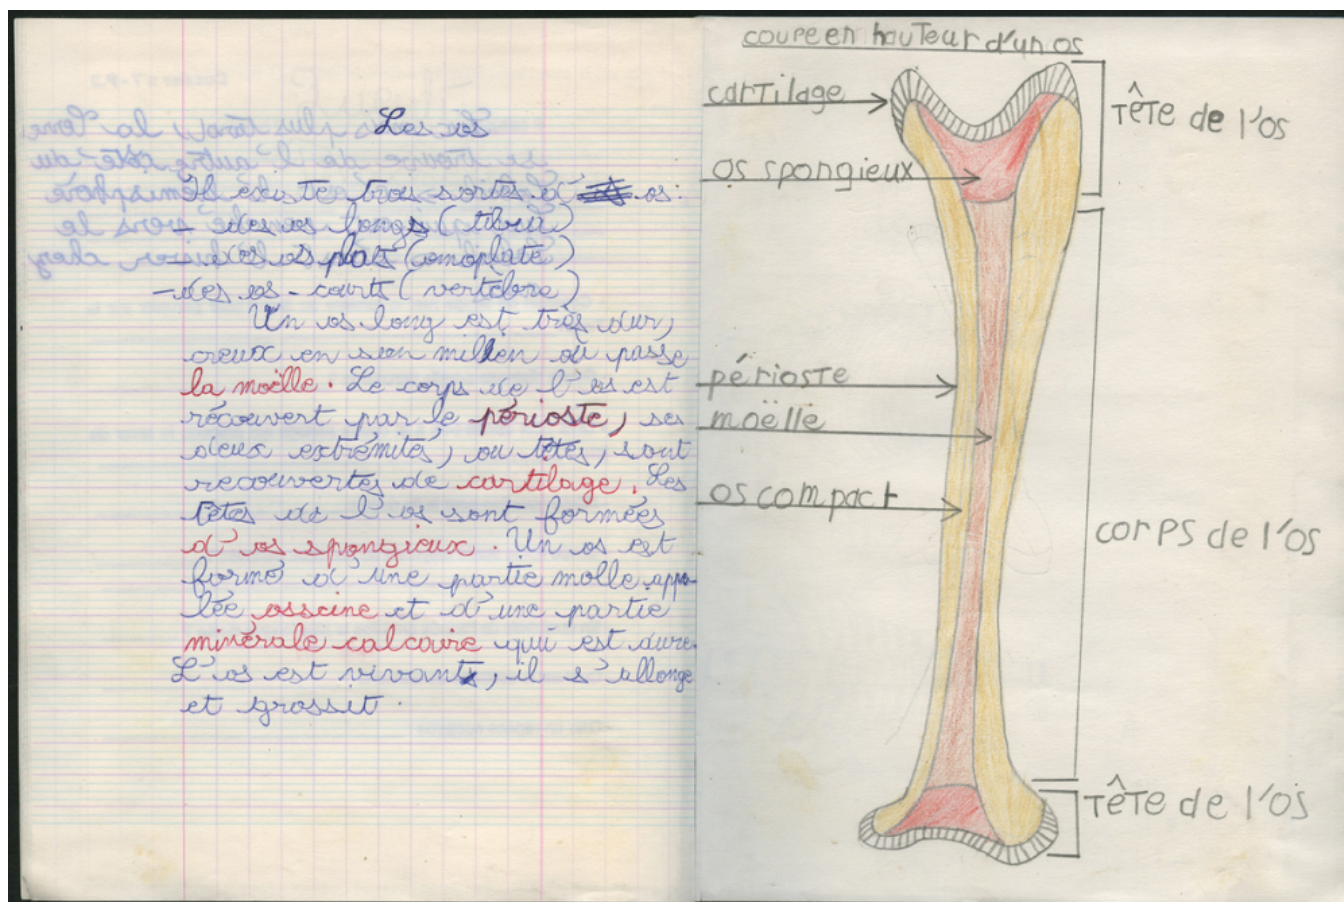 Les os
Il existe trois sortes d' os :
- des os longs (tibia)
- des os plats (omoplate)
- des os - courts (vertèbre)
Un os long est très dur,
creux en son milieu où passe
la moëlle. Le corps de l'os est
récouvert par le périoste, ses
deux extrémités, ou têtes, sont
recouvertes de cartilage. Les
têtes de l'os sont formées
d'os spongieux. Un os est
formé d'une partie molle appe-
lée osseine et d'une partie
minérale calcaire qui est dure.
L'os est vivant, il s'allonge
et grossit.
coupe en hauteur d'un os
cartilage
os spongieux
périoste
moëlle
os compact
Tête de l'os
corps de l'os
Tête de l'os